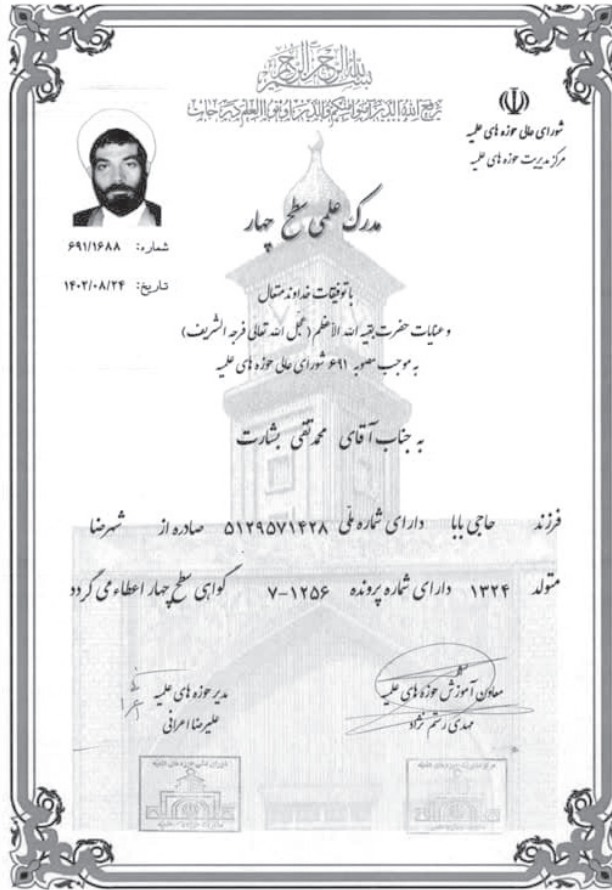 بسم الله الرحمن الرحیم
یرفع الله الذین آمنوا منکم والذین اوتوا العلم درجات
شورای عالی حوزه های علمیه
مرکز مدیریت حوزه های علمیه
مدرک علمی سطح چهار
شماره: ۶۹۱/۱۶۸۸
تاریخ: ۱۴۰۲/۰۸/۲۴
با توفیقات خداوند متعال
و عنایات حضرت بقیه الله الأعظم (عجّل الله تعالی فرجه الشریف)
به موجب مصوبه ۶۹۱ شورای عالی حوزه های علمیه
به جناب آقای محمدتقی بشارت
فرزند حاجی بابا دارای شماره ملی ۵۱۲۹۵۷۱۴۲۸ صادره از شهرضا
متولد ۱۳۲۴ دارای شماره پرونده ۷-۱۲۵۶ گواهی سطح چهار اعطاء می گردد
معاون آموزش حوزه های علمیه
مهدی رستم نژاد
مدیر حوزه های علمیه
علیرضا اعرافی